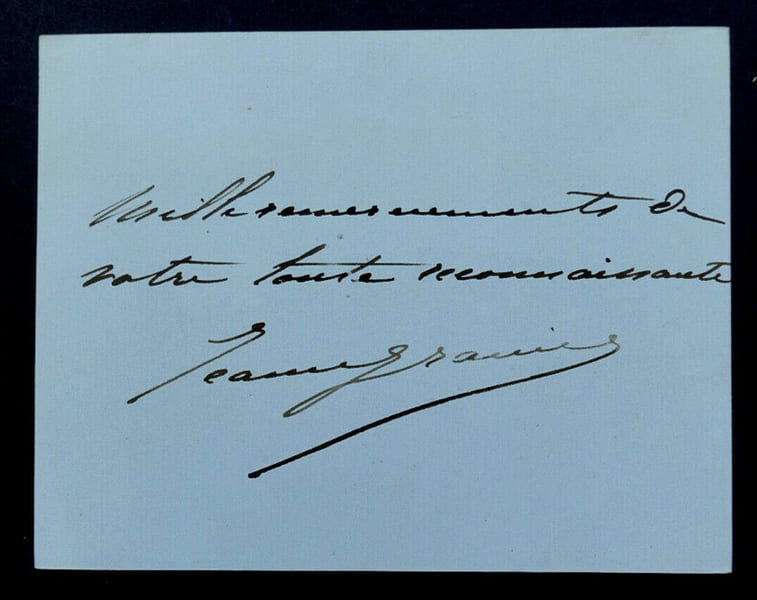 Mille remerciements de
votre toute reconnaissante
Jeanne Granier